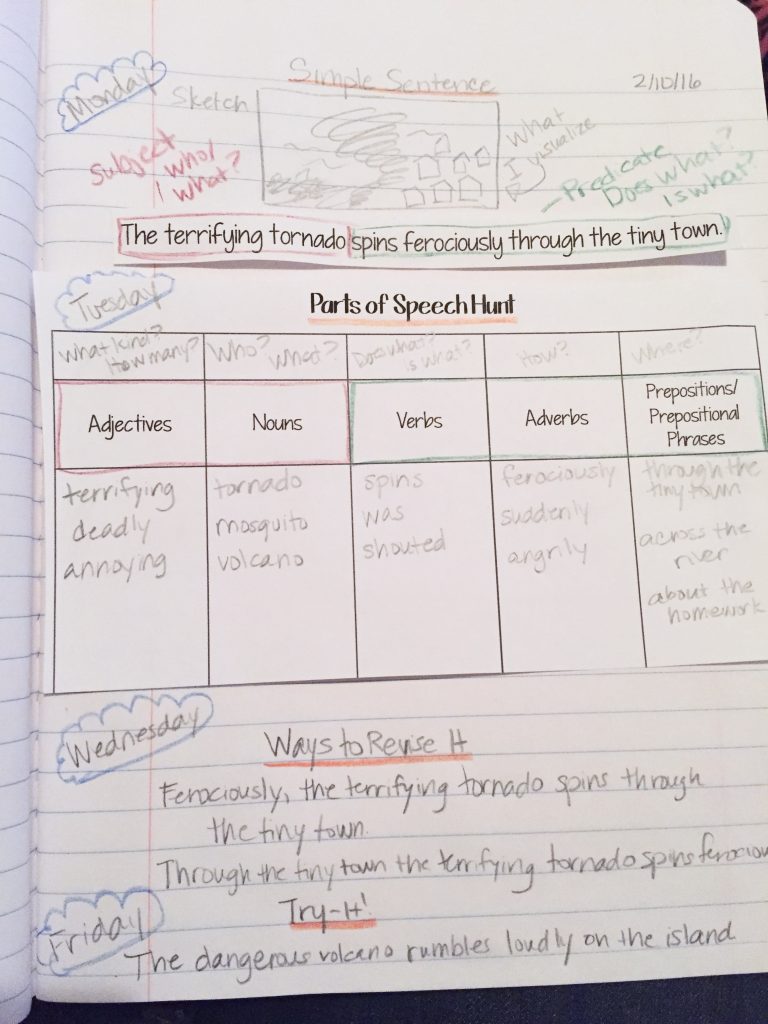 Simple Sentence
2/10/16
Monday
Sketch
What
I
visualize
Subject
who/
what?
Predicate
Does what?
Is what?
The terrifying tornado spins ferociously through the tiny town.
Tuesday
Parts of Speech Hunt
What kind? How many?
Who? What?
Does what? is what?
How?
Where?
Adjectives
Nouns
Verbs
Adverbs
Prepositions/
Prepositional
Phrases
terrifying
deadly
annoying
tornado
mosquito
volcano
spins
was
shouted
ferociously
suddenly
angrily
through the
tiny town
across the
river
about the
homework
Wednesday
Ways to Revise It
Ferociously, the terrifying tornado spins through
the tiny town.
Through the tiny town the terrifying tornado spins ferociou
Try-It!
Friday
The dangerous volcano rumbles loudly on the island